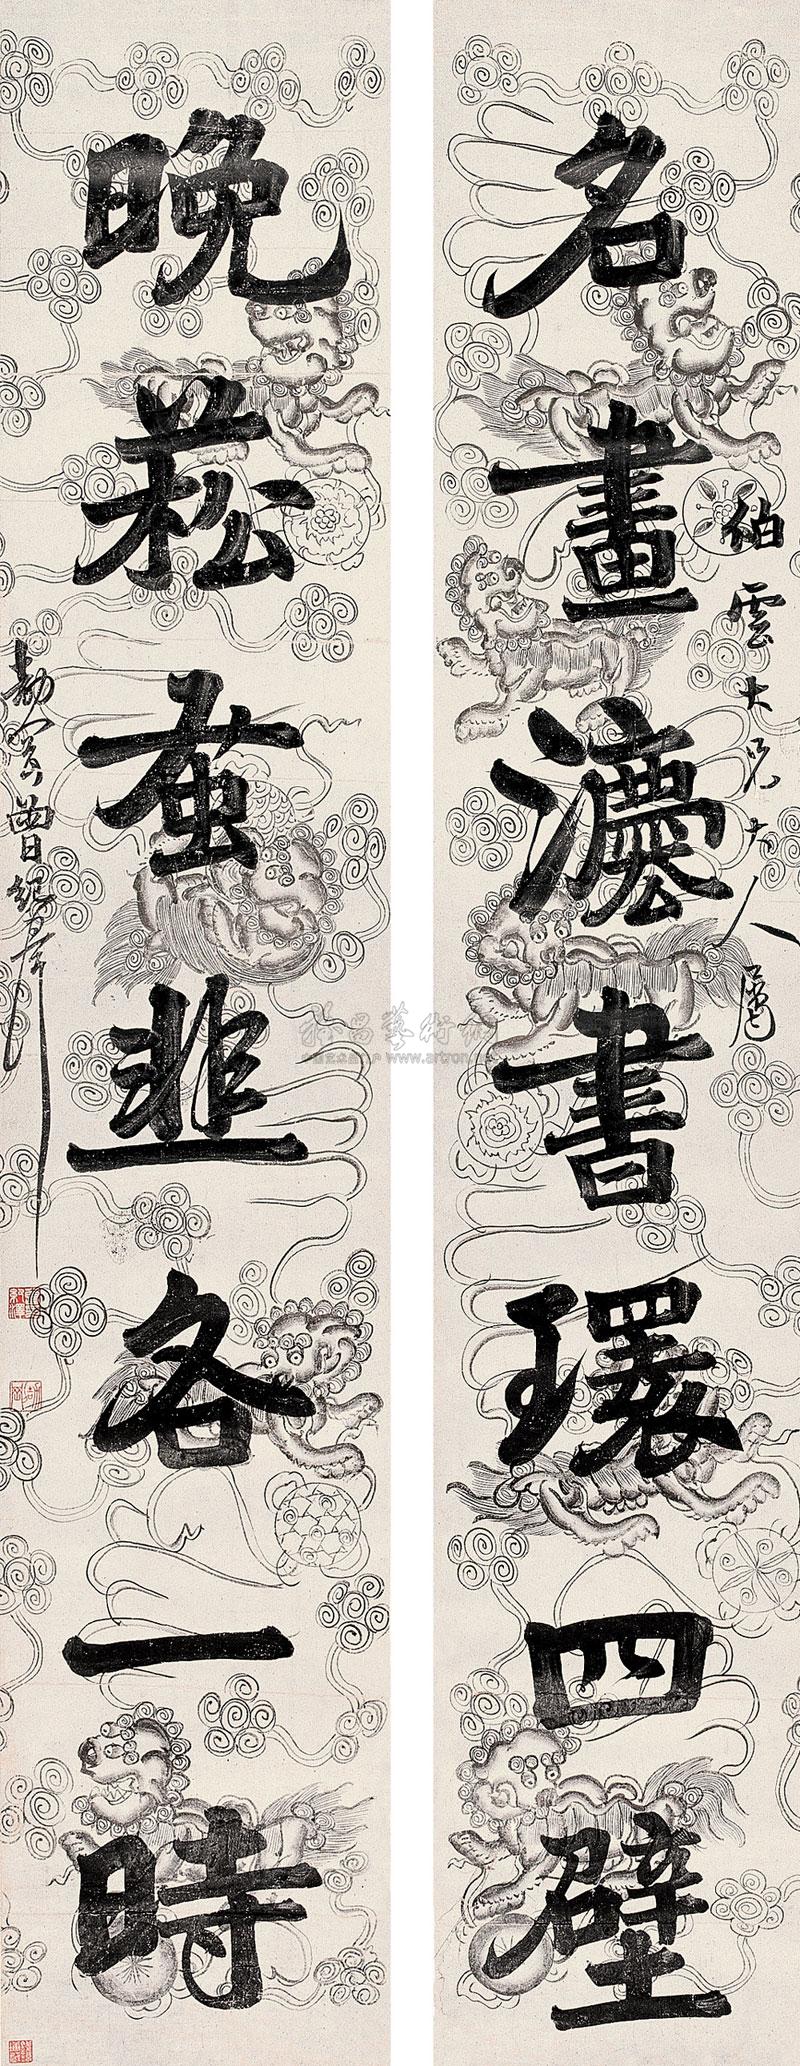 名畫灋書環四壁
伯雲大兄大人屬
晚菘蚤韭各一時
劼剛曾紀澤
雅昌藝術網
www.artron.net